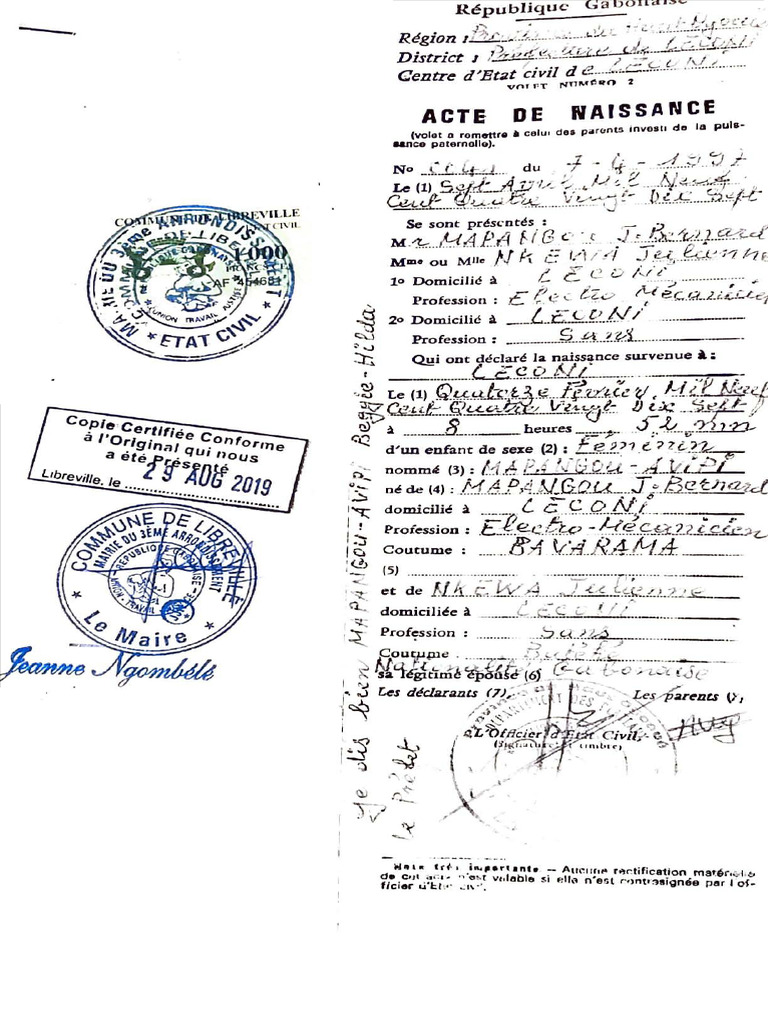 COMMUNE DE LIBREVILLE
ETAT CIVIL
1000
AF 454681
MAIRIE DU 3ème ARRONDISSEMENT
COMMUNE DE LIBREVILLE
REPUBLIQUE GABONAISE
UNION TRAVAIL JUSTICE
* ETAT CIVIL *
Copie Certifiée Conforme
à l'Original qui nous
a été Présenté
Libreville, le 29 AUG 2019
COMMUNE DE LIBREVILLE
MAIRIE DU 3ÈME ARRONDISSEMENT
REPUBLIQUE GABONAISE
UNION - TRAVAIL
* Le Maire *
Jeanne Ngombélé
République Gabonaise
Région : Province du Haut-Ogooué
District : Préfecture de LECONI
Centre d'Etat civil de LECONI
VOLET NUMÉRO 2
ACTE DE NAISSANCE
(volet a remettre à celui des parents investi de la puis-
sance paternelle).
No du 7-4-1997
Le (1) Sept Avril Mil Neuf
Cent Quatre Vingt Dix Sept
Se sont présentés :
Mr MAPANGOU J. Bernard
Mme ou Mlle NKEWA Julienne
1o Domicilié à LECONI
Profession : Electro Mécanicien
2o Domicilié à LECONI
Profession : Sans
Qui ont déclaré la naissance survenue à :
LECONI
Le (1) Quatorze Février Mil Neuf
Cent Quatre Vingt Dix Sept
à 8 heures 52 mn
d'un enfant de sexe (2) : Féminin
nommé (3) : MAPANGOU-AVIPI
né de (4) : MAPANGOU J. Bernard
domicilié à LECONI
Profession : Electro-Mécanicien
Coutume : BAVARAMA
(5)
et de NKEWA Julienne
domiciliée à LECONI
Profession : Sans
Coutume
Nationalité Gabonaise
sa légitime épouse (6)
Les déclarants (7), Les parents (7),
L'Officier d'Etat Civil,
(Signature et timbre)
Je dis bien MAPANGOU-AVIPI Beggie-Hilda
Le Préfet
Nota très importante — Aucune rectification matérielle
de cet acte n'est valable si elle n'est contresignée par l'of-
ficier d'Etat civil.